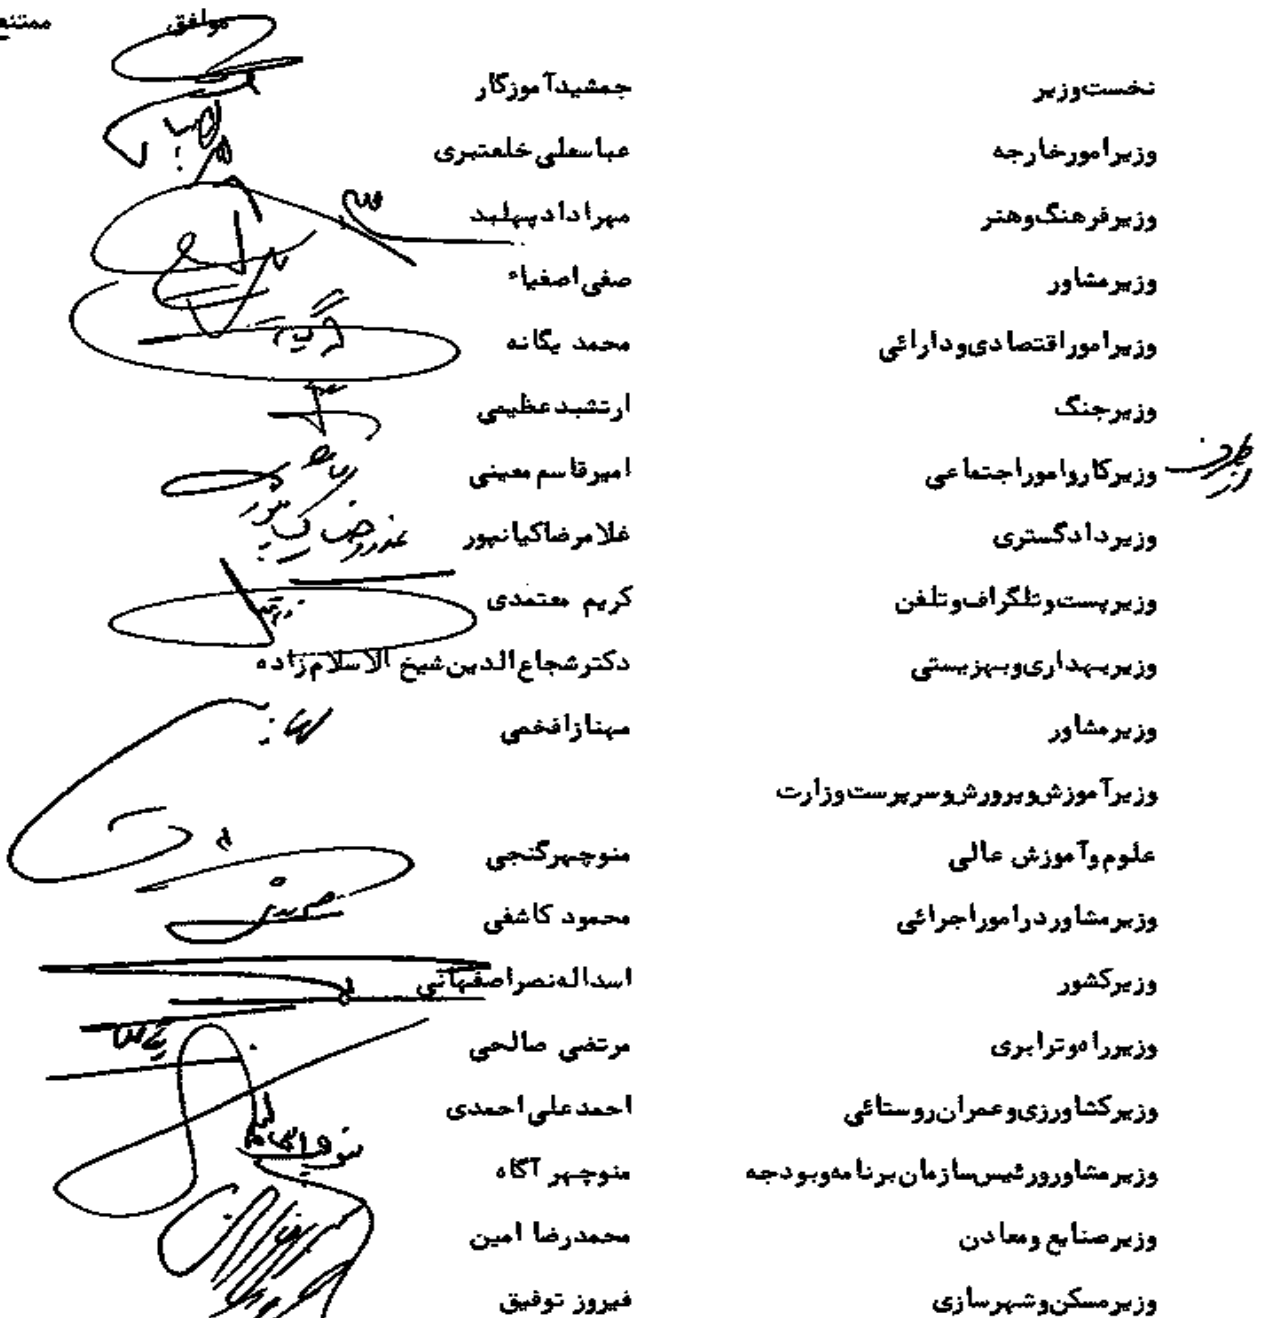 موافق ممتنع
نخست‌وزیر جمشید آموزگار
وزیر امور خارجه عباسعلی خلعتبری
وزیر فرهنگ و هنر مهرداد پهلبد
وزیر مشاور صفی اصفیاء
وزیر امور اقتصادی و دارائی محمد یگانه
وزیر جنگ ارتشبد عظیمی
وزیر کار و امور اجتماعی امیرقاسم معینی
وزیر دادگستری غلامرضا کیانپور
وزیر پست و تلگراف و تلفن کریم معتمدی
وزیر بهداری و بهزیستی دکتر شجاع‌الدین شیخ الاسلام زاده
وزیر مشاور مهناز افخمی
وزیر آموزش و پرورش و سرپرست وزارت
علوم و آموزش عالی منوچهر گنجی
وزیر مشاور در امور اجرائی محمود کاشفی
وزیر کشور اسداله نصر اصفهانی
وزیر راه و ترابری مرتضی صالحی
وزیر کشاورزی و عمران روستائی احمد علی احمدی
وزیر مشاور و رئیس سازمان برنامه و بودجه منوچهر آگاه
وزیر صنایع و معادن محمدرضا امین
وزیر مسکن و شهرسازی فیروز توفیق